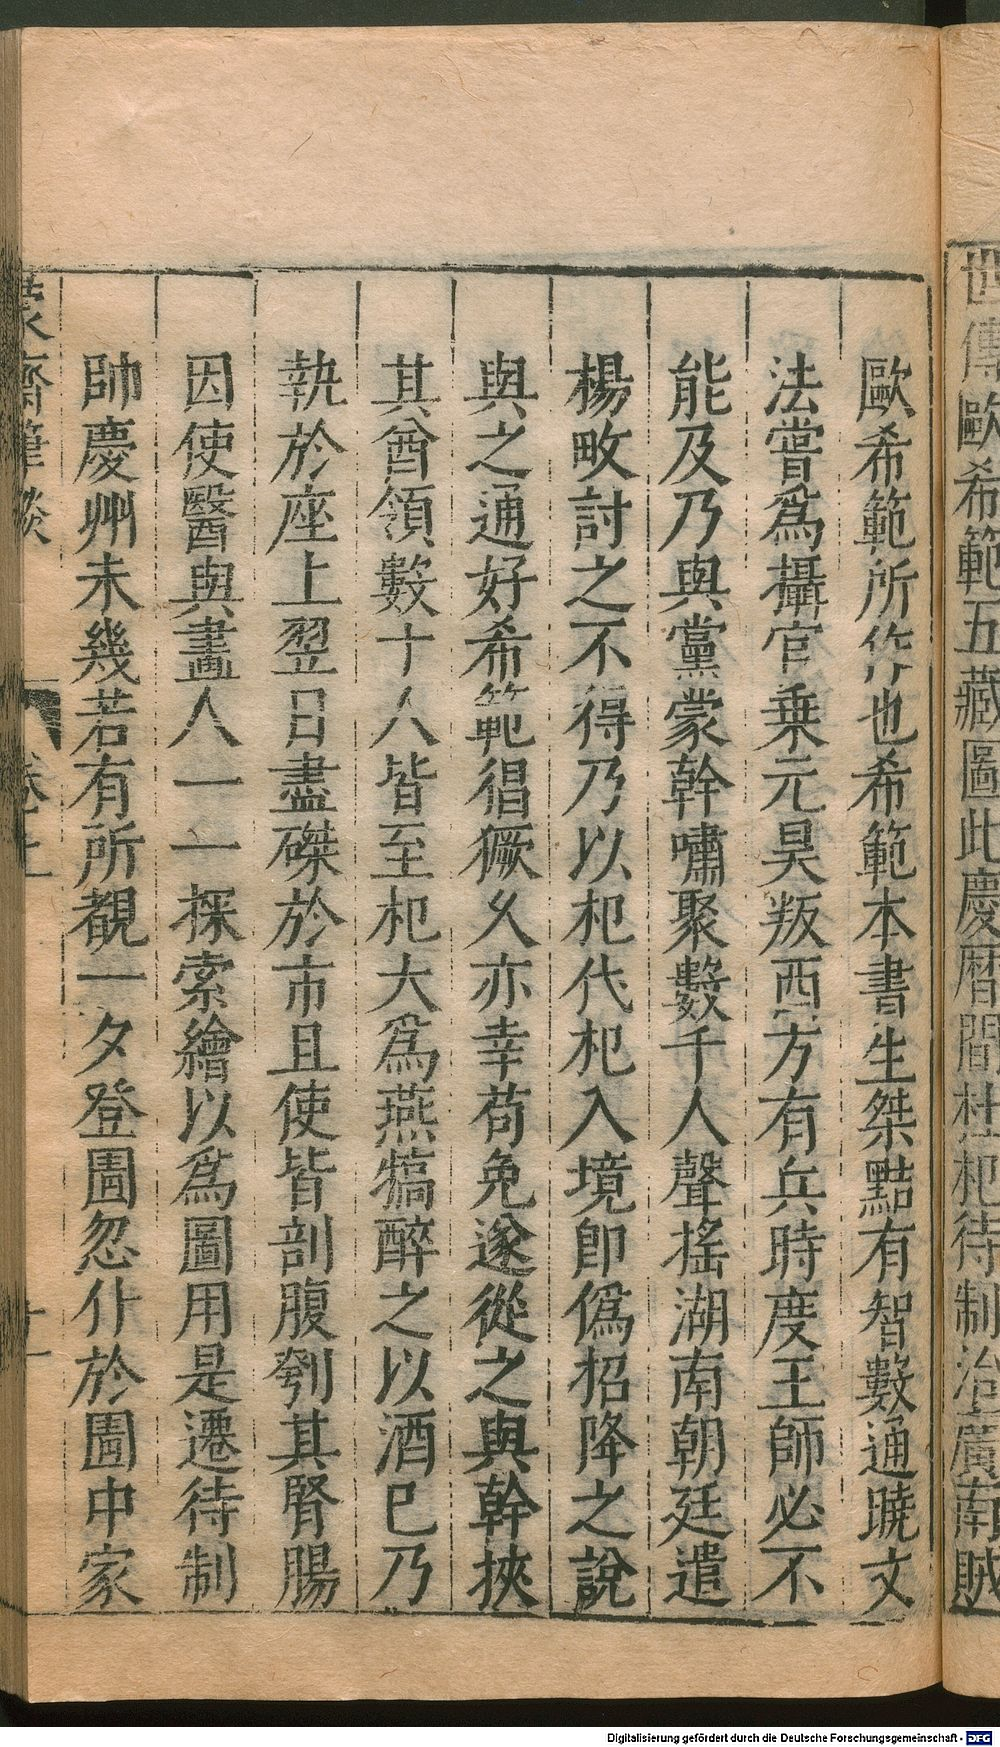 世傳歐希範五藏圖此慶曆間杜杞待制治廣南賊
歐希範所作也希範本書生桀黠有智數通曉文
法嘗爲攝官乗元昊叛西方有兵時度王師必不
能及乃與黨蒙幹嘯聚數千人聲搖湖南朝廷遣
楊畋討之不得乃以杞代杞入境即僞招降之說
與之通好希範猖獗久亦幸苟免遂從之與幹挾
其酋領數十人皆至杞大爲燕犒醉之以酒已乃
執於座上翌日盡磔於市且使皆剖腹刳其腎腸
因使醫與畫人一一探索繪以爲圖用是遷待制
帥慶州未幾若有所覩一夕登圊忽仆於圊中家
蒙齋筆談 卷上
Digitalisierung gefördert durch die Deutsche Forschungsgemeinschaft - DFG